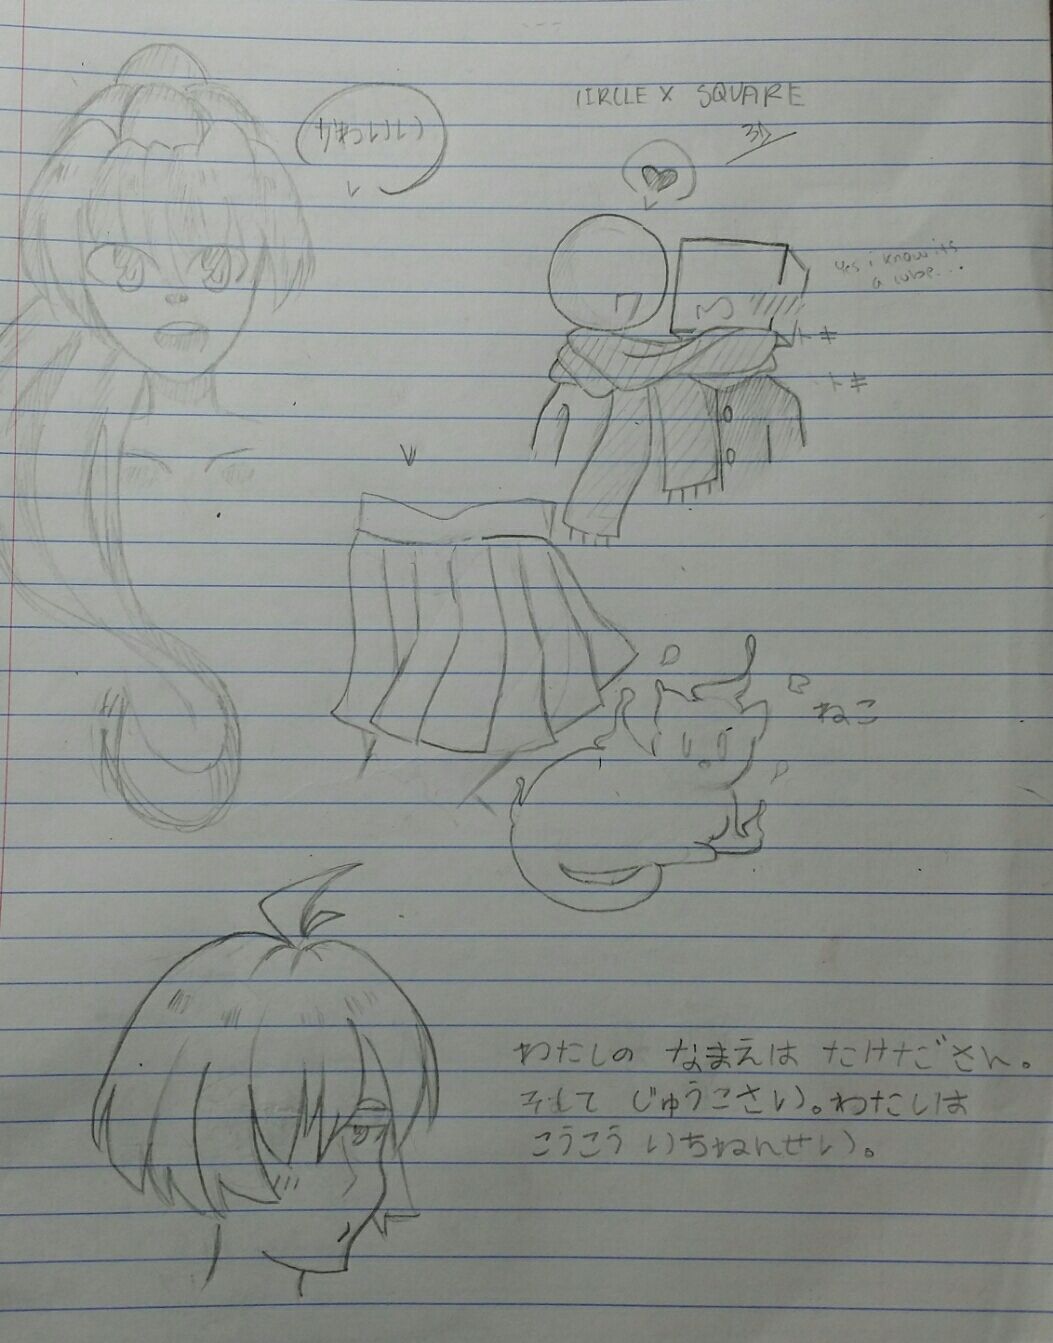 CIRCLE X SQUARE
yes i know its
a cube...
トキ
トキ
ねこ
わたしの なまえは たけださん。
そして じゅうごさい。わたしは
こうこう いちねんせい。